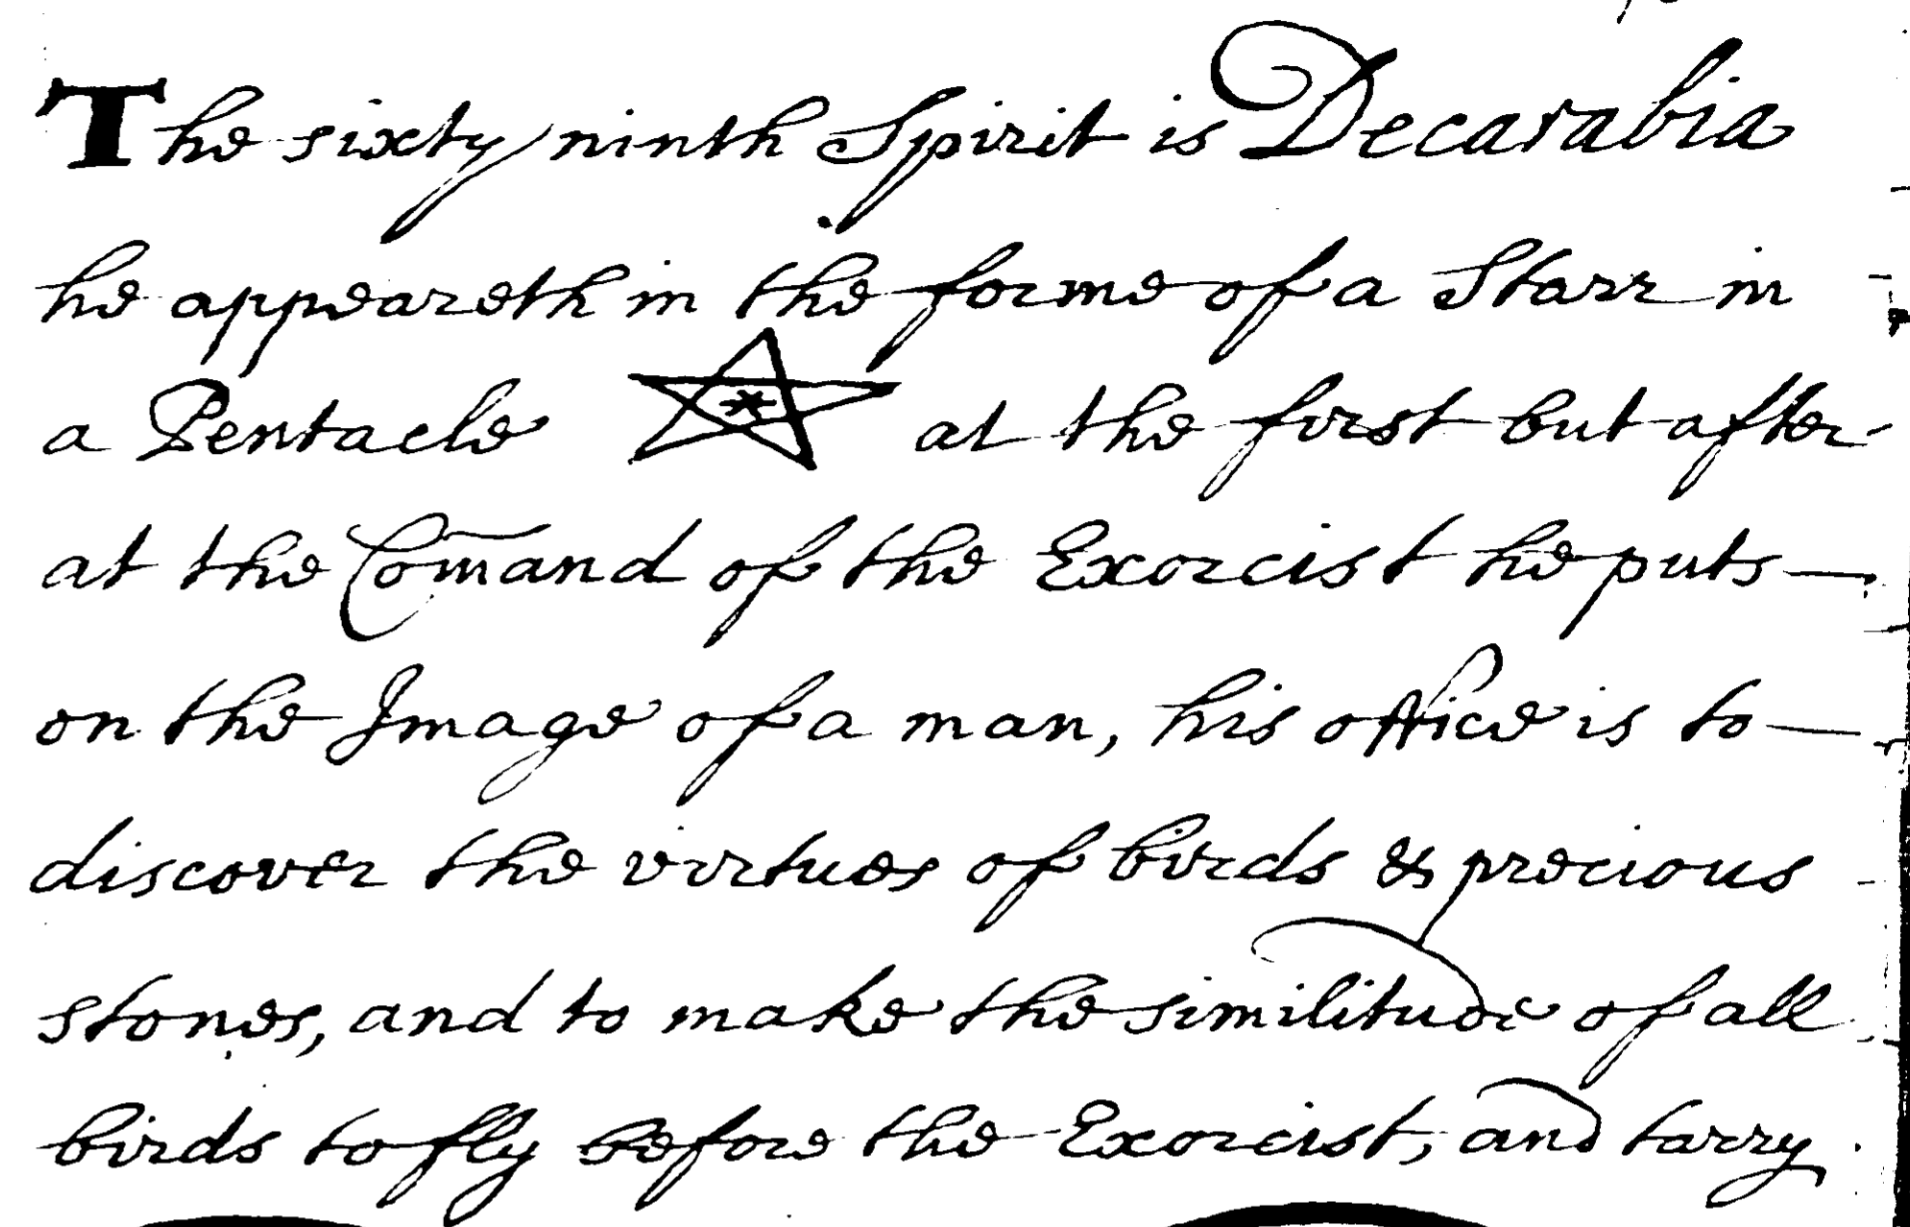 The sixty ninth Spirit is Decarabia
he appeareth in the forme of a Starr in
a Pentacle at the first but after
at the Com̄and of the Exorcist he puts —
on the Image of a man, his office is to —
discover the virtues of birds & precious
stones, and to make the similitude of all
birds to fly before the Exorcist, and tarry